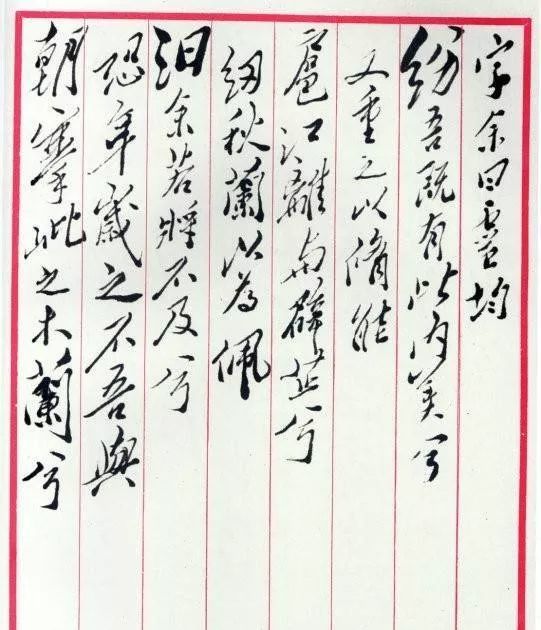 字余曰靈均
紛吾既有此内美兮
又重之以脩能
扈江離与辟芷兮
紉秋蘭以為佩
汩余若将不及兮
恐年歲之不吾與
朝搴阰之木蘭兮